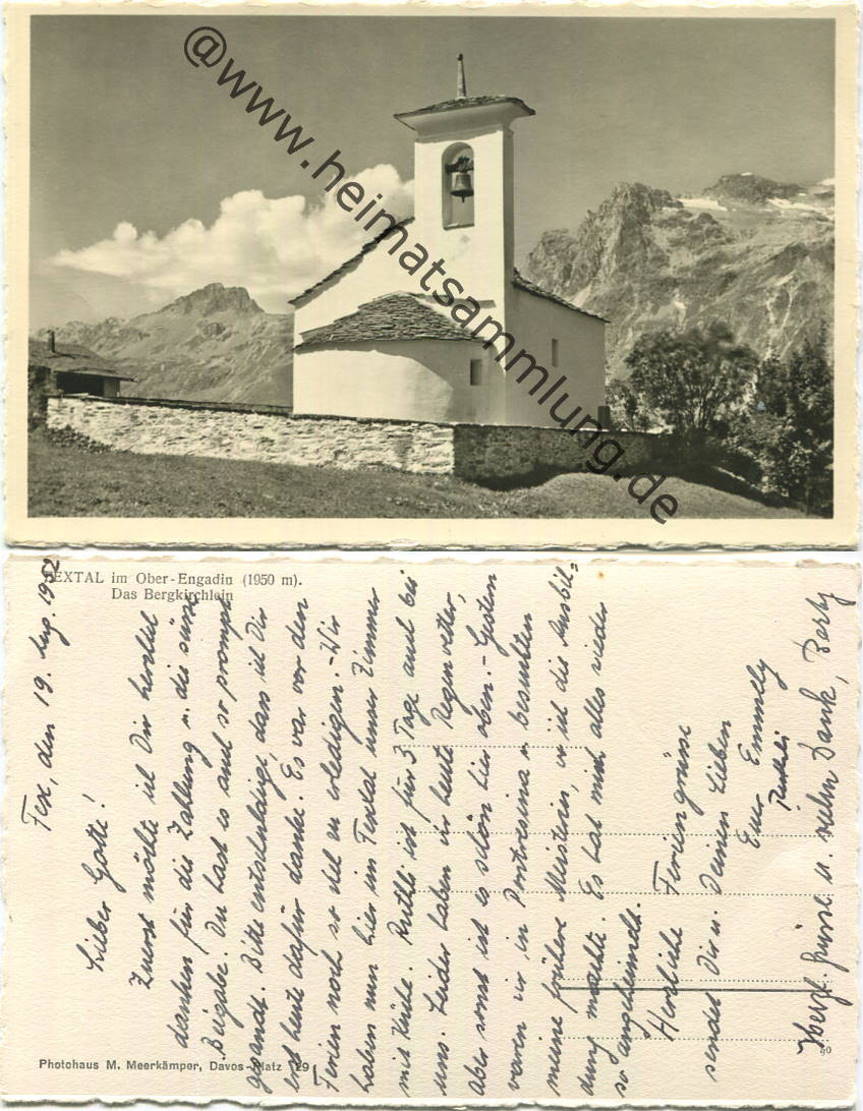 @www.heimatsammlung.de
FEXTAL im Ober-Engadin (1950 m).
Das Bergkirchlein
Fex, den 19. Aug. 1952
Lieber Götti!
Zuerst möchte ich Dir herzlich
danken für die Zahlung u. die süsse
Beigabe. Du hast es auch so prompt
gesandt. Bitte entschuldige, dass ich Dir
erst heute dafür danke. Es war vor den
Ferien noch so viel zu erledigen.- Wir
haben nun hier im Fextal unser Zimmer
mit Küche. Ruthli ist für 3 Tage auch bei
uns. Leider haben wir heute Regenwetter,
Aber sonst ist es schön hier oben.- Gestern
waren wir in Pontresina u. besuchten
meine frühere Meisterin, wo ich die Ausbil=
dung machte. Es hat mich alles wieder
so angeheimelt.
Herzliche Feriengrüsse
sendet Dir u. Deinen Lieben
Euer Emmely
Ruthli
Herzl. Grüsse u. vielen Dank, Berty
Photohaus M. Meerkämper, Davos-Platz